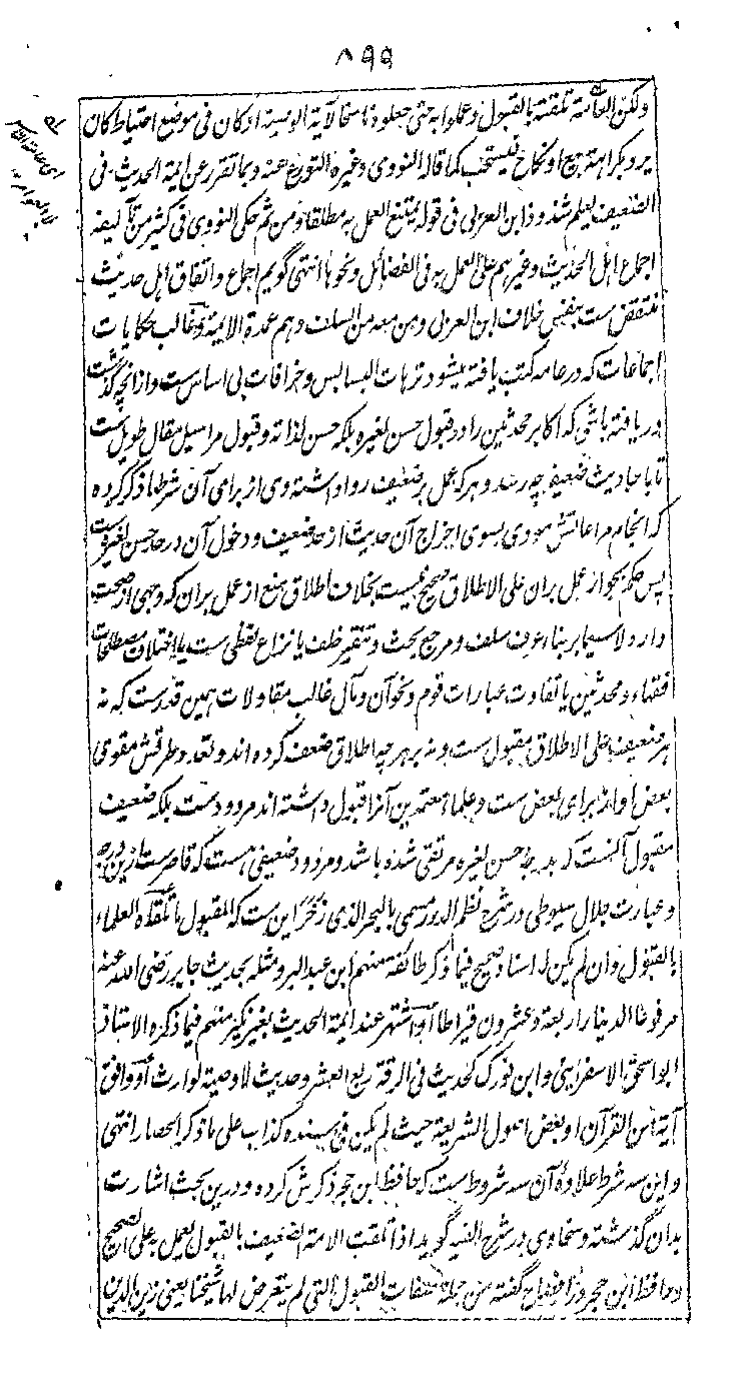 ۸۹۹
ولکن العامة تلقته بالقبول وعملوا به حتی جعلوه ناسخا لآیة الوصیة او کان فی موضع احتیاط کان
یرد بکراهته بیع او نکاح فیستحب کما قاله النووی وغیره التورع عنه وبما تقرر عن ایمة الحدیث فی
الضعیف یعلم شذوذ ابن العربی فی قوله یمتنع العمل به مطلقا ومن ثم حکی النووی فی کثیر من تآلیفه
اجماع اهل الحدیث وغیرهم علی العمل به فی الفضائل ونحوها انتهی گویم اجماع واتفاق اهل حدیث
منتقض ست بنفس خلاف ابن العربی ومن معه من السلف وهم عمدة الایمة وغالب حکایات
اجماعات که در عامه کتب یافته میشود ترهات البسابس وخرافات بی اساس ست وازانچه گذشت
دریافته باشی که اکابر محدثین را در قبول حسن لغیره بلکه حسن لذاته وقبول مراسیل مقال طویل ست
تا باحادیث ضعیفه چه رسد وهر که عمل بر ضعیف روا داشته وی از برای آن شرطها ذکر کرده
که انجام مراعاتش مودی بسوی اخراج آن حدیث از حد ضعیف ودخول آن در حد حسن لغیره ست
پس حکم بجواز عمل بران علی الاطلاق صحیح نیست بخلاف اطلاق منع از عمل بران که وجهی از صحت
دارد لاسیما بر بناء عرف سلف ومرجع بحث وتنقیر خلف یا نزاع لفظی ست یا اختلاف مصطلحات
فقهاء ومحدثین یا تفاوت عبارات قوم ونحو آن ومآل غالب مقاولات همین قدر ست که نه
هر ضعیف علی الاطلاق مقبول ست ونه هر چه اطلاق ضعف کرده اند وتعدد طرقش مقوی
بعض او از برای بعض ست وعلماء معتمدین آنرا قبول داشته اند مردود ست بلکه ضعیف
مقبول آنست که بدرجه حسن لغیره مرتقی شده باشد ومردود ضعیفی هست که قاصر ست ازین درجه
وعبارت جلال سیوطی در شرح نظم الدرر مسمی بالبحر الذی زخر این ست که المقبول ما تلقاه العلماء
بالقبول وان لم یکن له اسناد صحیح فیما ذکر طائفة منهم ابن عبد البر ومثله بحدیث جابر رضی الله عنه
مرفوعا الدینار اربعة وعشرون قیراطا او اشتهر عند ایمة الحدیث بغیر نکیر منهم فیما ذکره الاستاذ
ابو اسحق الاسفراینی وابن فورک کحدیث فی الرقة ربع العشر وحدیث لا وصیة لوارث او وافق
آیة من القرآن او بعض اصول الشریعة حیث لم یکن فی سنده کذاب علی ما ذکر الحصار انتهی
واین سه شرط علاوه آن سه شروط ست که حافظ ابن حجر ذکرش کرده ودرین بحث اشارت
بدان گذشته وسخاوی در شرح الفیه گوید اذا تلقت الامة الضعیف بالقبول یعمل به علی الصحیح
وحافظ ابن حجر در افصاح گفته من جملة صفات القبول التی لم یتعرض لها شیخنا یعنی زین الدین